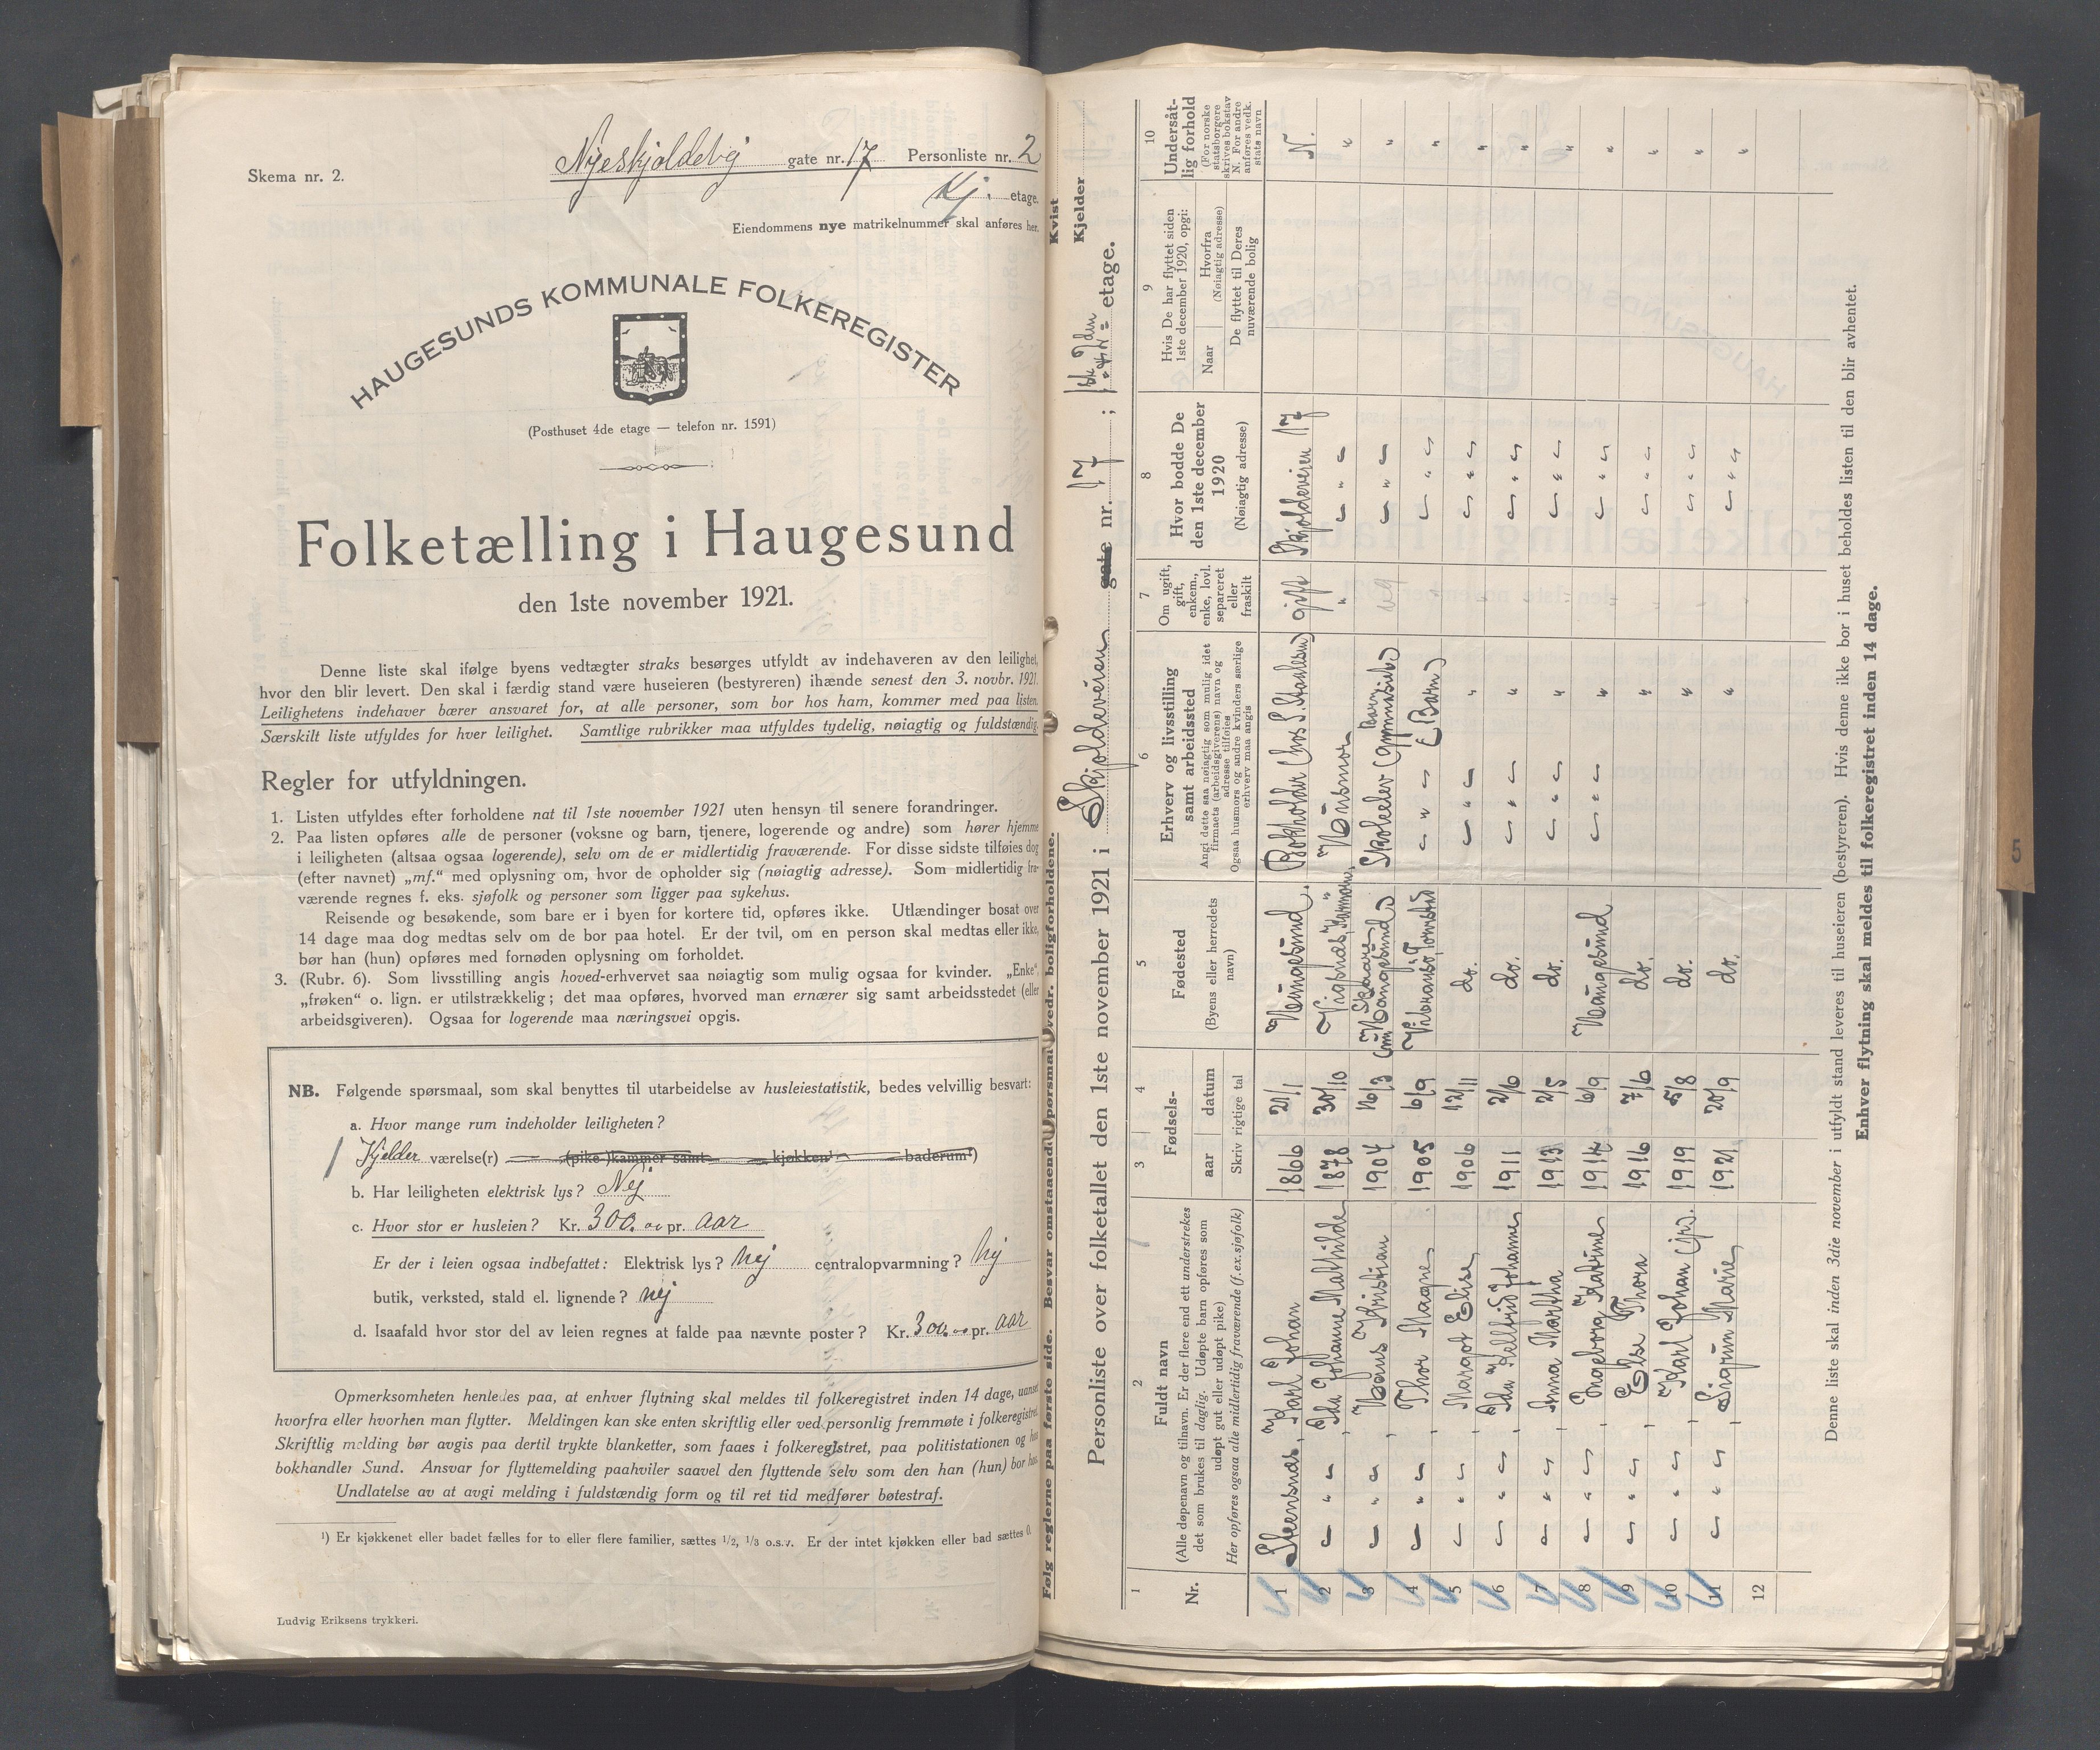 Skema nr. 2.
Nyeskjoldevg gate nr. 17 Personliste nr. 2
Kj. etage.
Eiendommens nye matrikelnummer skal anføres her.
HAUGESUNDS KOMMUNALE FOLKEREGISTER
(Posthuset 4de etage — telefon nr. 1591)
Folketælling i Haugesund
den 1ste november 1921.
Denne liste skal ifølge byens vedtægter straks besørges utfyldt av indehaveren av den leilighet,
hvor den blir levert. Den skal i færdig stand være huseieren (bestyreren) ihænde senest den 3. novbr. 1921.
Leilighetens indehaver bærer ansvaret for, at alle personer, som bor hos ham, kommer med paa listen.
Særskilt liste utfyldes for hver leilighet. Samtlige rubrikker maa utfyldes tydelig, nøiagtig og fuldstændig.
Regler for utfyldningen.
1. Listen utfyldes efter forholdene nat til 1ste november 1921 uten hensyn til senere forandringer.
2. Paa listen opføres alle de personer (voksne og barn, tjenere, logerende og andre) som hører hjemme
i leiligheten (altsaa ogsaa logerende), selv om de er midlertidig fraværende. For disse sidste tilføies dog
(efter navnet) „mf.“ med oplysning om, hvor de opholder sig (nøiagtig adresse). Som midlertidig fra-
værende regnes f. eks. sjøfolk og personer som ligger paa sykehus.
Reisende og besøkende, som bare er i byen for kortere tid, opføres ikke. Utlændinger bosat over
14 dage maa dog medtas selv om de bor paa hotel. Er der tvil, om en person skal medtas eller ikke,
bør han (hun) opføres med fornøden oplysning om forholdet.
3. (Rubr. 6). Som livsstilling angis hoved-erhvervet saa nøiagtig som mulig ogsaa for kvinder. „Enke“,
„frøken“ o. lign. er utilstrækkelig; det maa opføres, hvorved man ernærer sig samt arbeidsstedet (eller
arbeidsgiveren). Ogsaa for logerende maa næringsvei opgis.
NB. Følgende spørsmaal, som skal benyttes til utarbeidelse av husleiestatistik, bedes velvillig besvart:
a. Hvor mange rum indeholder leiligheten?
1 Kjelder værelse(r) (pike-)kammer samt kjøkken¹) baderum¹)
b. Har leiligheten elektrisk lys? Nej
c. Hvor stor er husleien? Kr. 300.00 pr. aar
Er der i leien ogsaa indbefattet: Elektrisk lys? nej centralopvarmning? nej
butik, verksted, stald el. lignende? nej
d. Isaafald hvor stor del av leien regnes at falde paa nævnte poster? Kr. 300.00 pr. aar
Opmerksomheten henledes paa, at enhver flytning skal meldes til folkeregistret inden 14 dage, uanset
hvorfra eller hvorhen man flytter. Meldingen kan ske enten skriftlig eller ved personlig fremmøte i folkeregistret.
Skriftlig melding bør avgis paa dertil trykte blanketter, som faaes i folkeregistret, paa politistationen og hos
bokhandler Sund. Ansvar for flyttemelding paahviler saavel den flyttende selv som den han (hun) bor hos.
Undlatelse av at avgi melding i fuldstændig form og til ret tid medfører bøtestraf.
¹) Er kjøkkenet eller badet fælles for to eller flere familier, sættes 1/2, 1/3 o.s.v. Er der intet kjøkken eller bad sættes 0.
Ludvig Eriksens trykkeri.
Følg reglerne paa første side. Besvar omstaaende spørsmaal vedr. boligforholdene.
Kvist
Kjelder
Personliste over folketallet den 1ste november 1921 i Skjoldeveien gate nr. 17 ; etage.
1 2 3 4 5 6 7 8 9 10
Nr.
Fuldt navn
(Alle døpenavn og tilnavn. Er der flere end ett understrekes
det som brukes til daglig. Udøpte barn opføres som
udøpt gut eller udøpt pike)
Her opføres ogsaa alle midlertidig fraværende (f.ex. sjøfolk)
Fødsels-
aar datum
Skriv rigtige tal
Fødested
(Byens eller herredets
navn)
Erhverv og livsstilling
samt arbeidssted
Angi dette saa nøiagtig som mulig idet
firmaets (arbeidsgiverens) navn og
adresse tilføies
Ogsaa husmors og andre kvinders særlige
erhverv maa angis
Om ugift,
gift,
enkem.,
enke, lovl.
separeret
eller
fraskilt
Hvor bodde De
den 1ste december
1920
(Nøiagtig adresse)
Hvis De har flyttet siden
1ste december 1920, opgi:
Naar
Hvorfra
(Nøiagtig adresse)
De flyttet til Deres
nuværende bolig
Undersåt-
lig forhold
(For norske
statsborgere
skrives bokstav
N. For andre
anføres vedk.
stats navn
1 Steensnæs, Karl Johan 1866 21/1 Haugesund. Bokholder gift Skjoldeveien 17 N.
2 — " — , Ida Johanne Mathilde 1878 30/10 Vigsnes, Karmøen, Husmor " — " — "
3 — " — , Hans Kristian 1904 16/3 Skaare Haugesund Skoleelev — " — "
4 — " — , Thor Magne 1905 6/9 — " — (Barn) — " — "
5 — " — , Margot Elise 1906 12/11 do. — " — " — " — "
6 — " — , Ida Hellfrid Johanne 1911 2/6 do. — " — " — " — "
7 — " — , Anna Martha 1913 2/5 do. — " — " — " — "
8 — " — , Ingeborg Katrine 1914 6/9 Haugesund — " — " — " — "
9 — " — , Else Thora 1916 7/6 do. " — " — "
10 — " — , Karl Johan (jr.). 1919 5/8 do. " — " — "
11 — " — , Sigrun Marie 1921 20/9 do. " — " — "
12
Denne liste skal inden 3die november i utfyldt stand leveres til huseieren (bestyreren). Hvis denne ikke bor i huset beholdes listen til den blir avhentet.
Enhver flytning skal meldes til folkeregistret inden 14 dage.